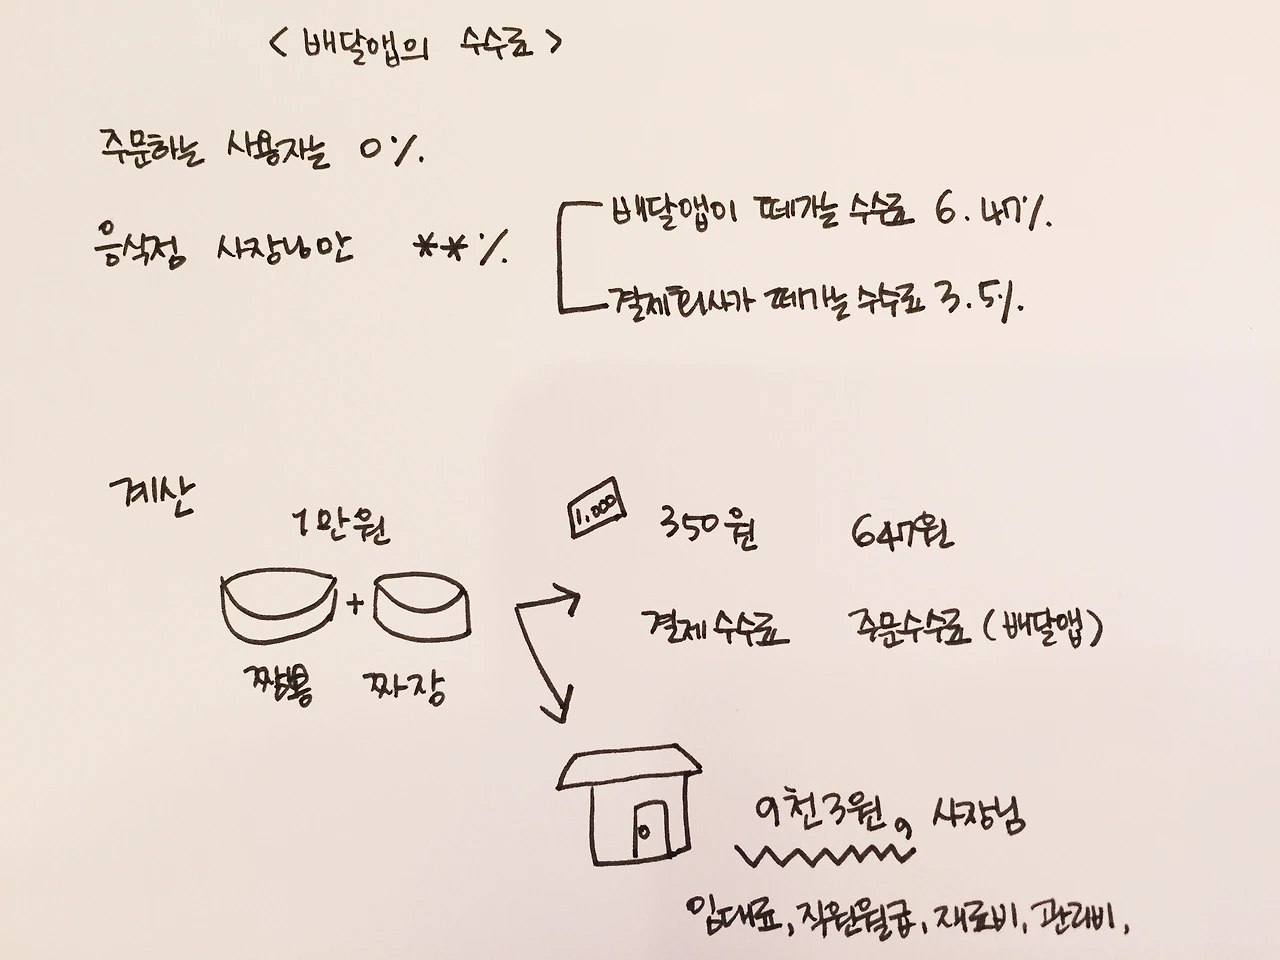 < 배달앱의 수수료 >
주문하는 사용자는 0%.
음식점 사장님만 **%.
배달앱이 떼가는 수수료 6.47%.
결제회사가 떼가는 수수료 3.5%.
계산
1만원
+
짬뽕 짜장
1,000
350원 647원
결제수수료 주문수수료 (배달앱)
9천3원, 사장님
임대료, 직원월급, 재료비, 관리비,